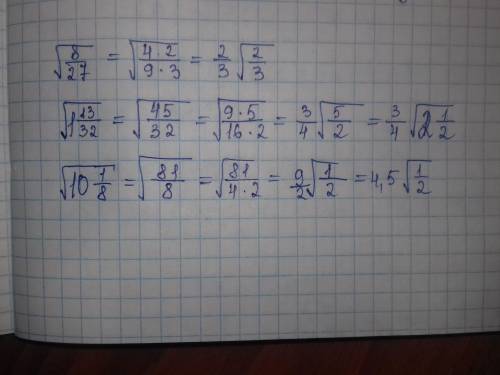 √(8/27) = √(4 2/9·3) = 2/3 √(2/3)
√(1 13/32) = √(45/32) = √(9·5/16·2) = 3/4 √(5/2) = 3/4 √(2 1/2)
√(10 1/8) = √(81/8) = √(81/4·2) = 9/2 √(1/2) = 4,5 √(1/2)